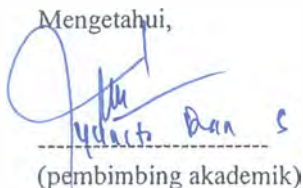 Mengetahui,
(pembimbing akademik)